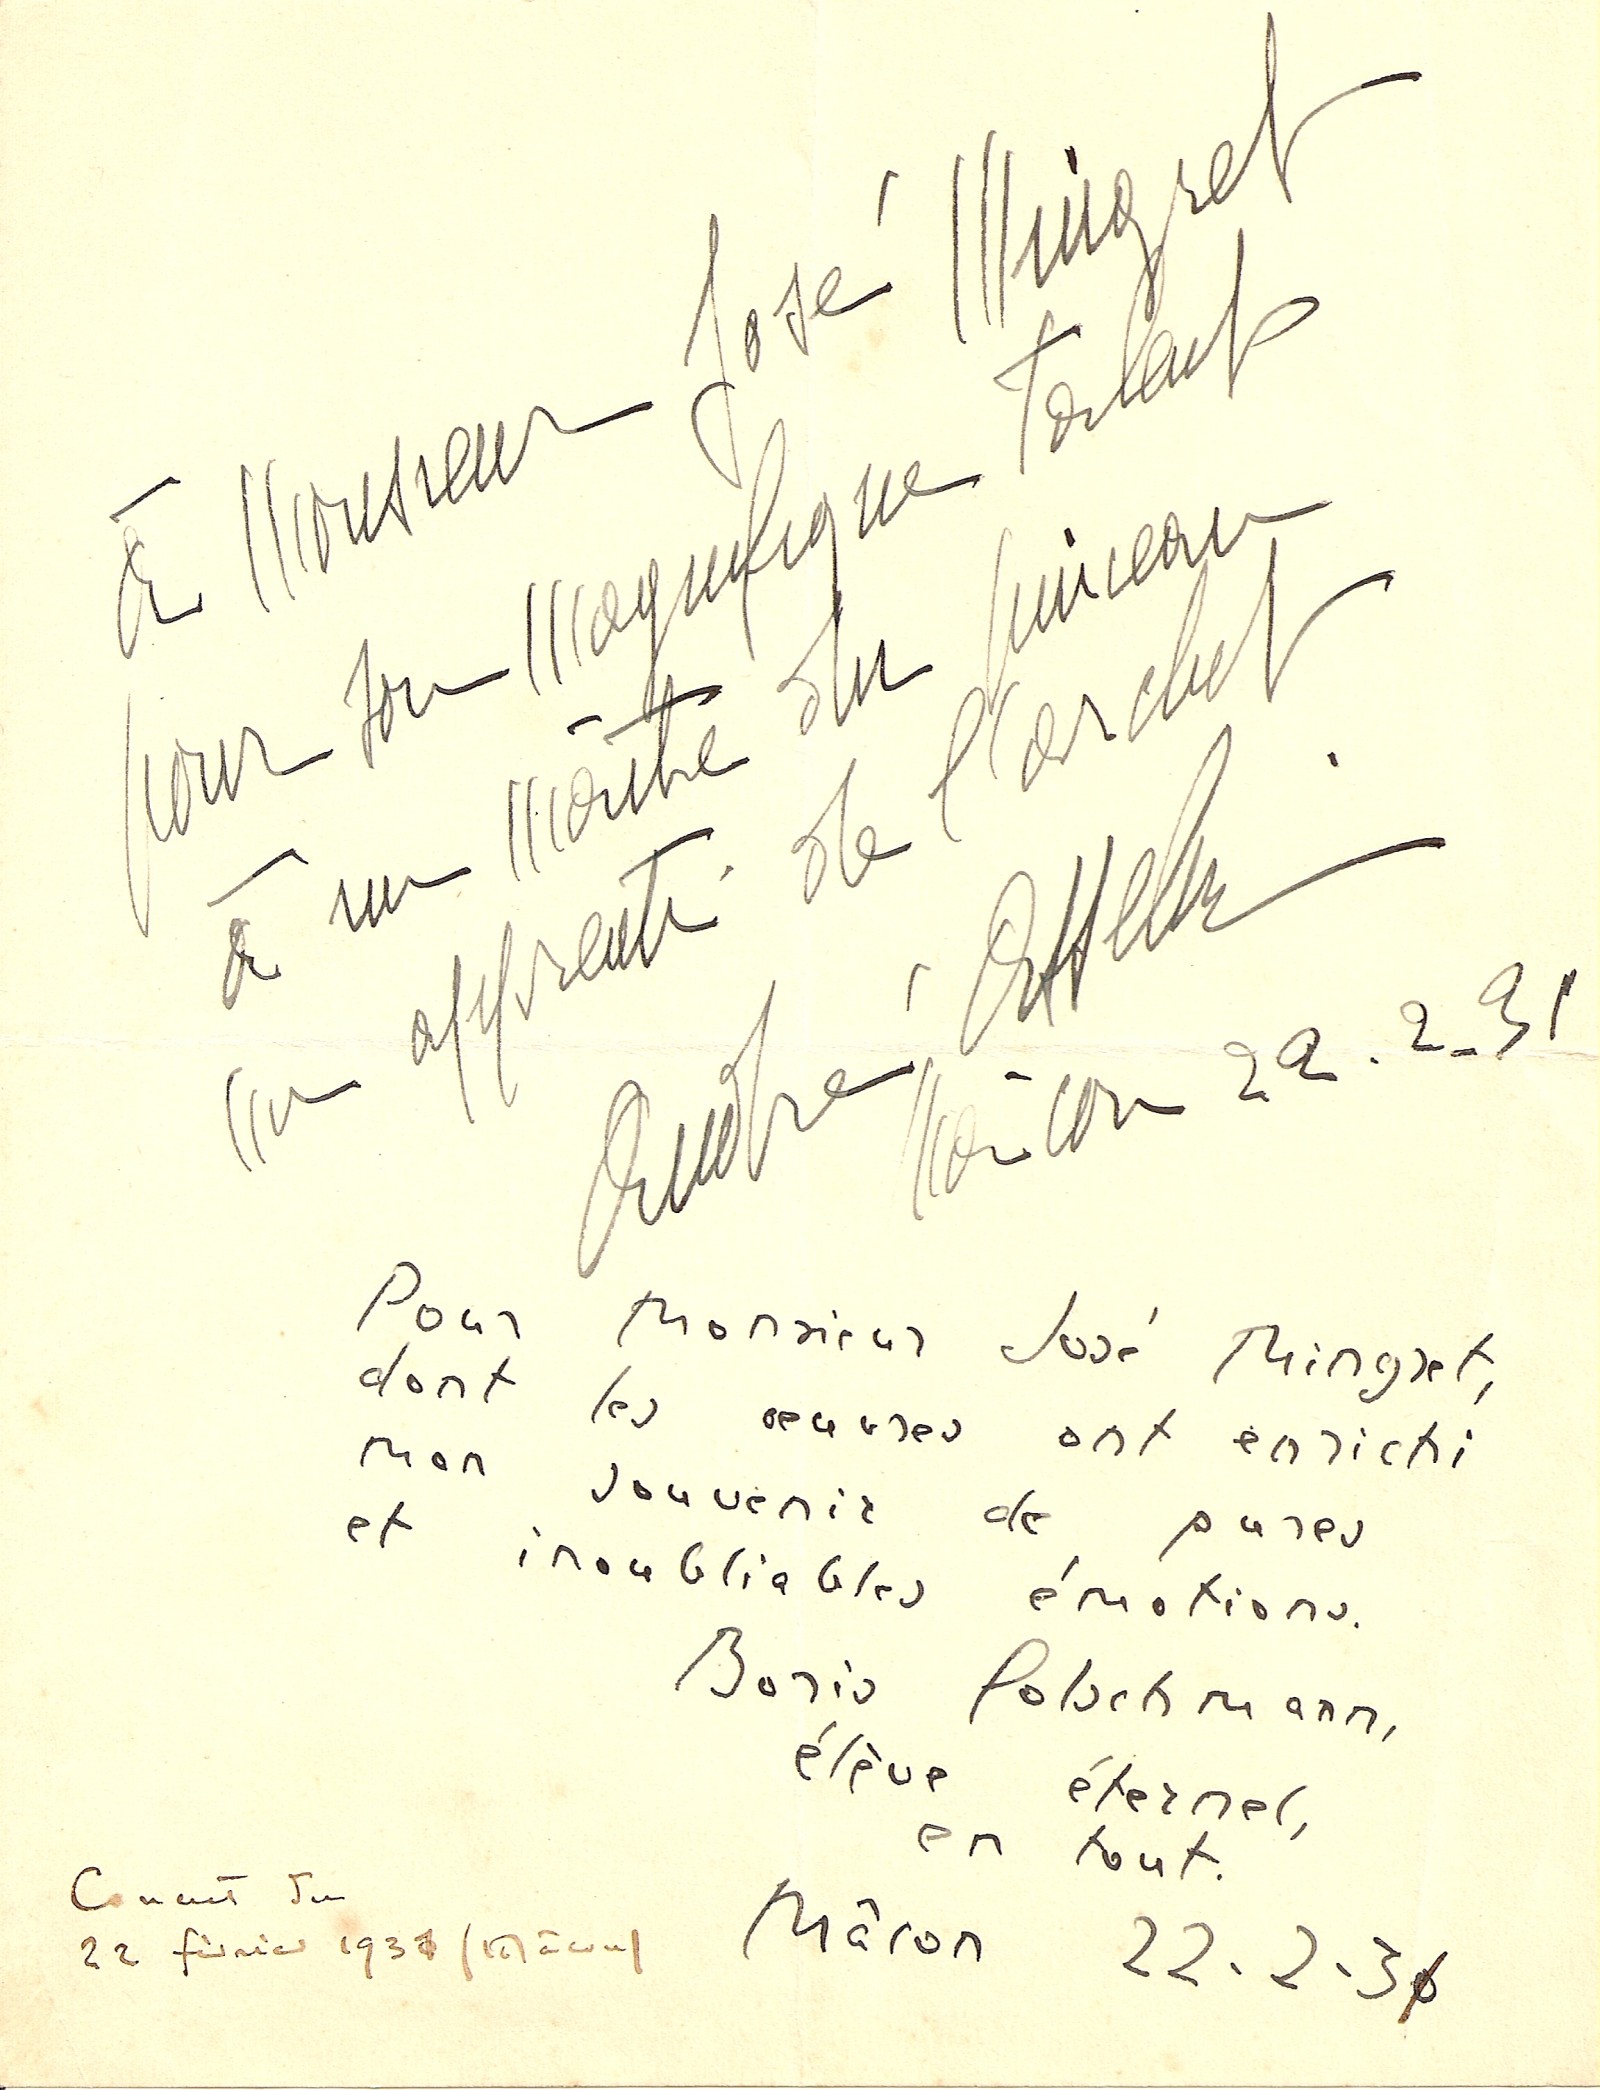 à Monsieur José Mingret
pour son Magnifique Talent
à un Maître du pinceau
un apprenti de l'archet
André Asselin
Mâcon 22.2.31
Pour Monsieur José Mingret,
dont les œuvres ont enrichi
mon souvenir de pures
et inoubliables émotions.
Boris Golschmann,
élève éternel,
en tout.
Mâcon 22.2.31
Concert du
22 février 1931 (Mâcon)